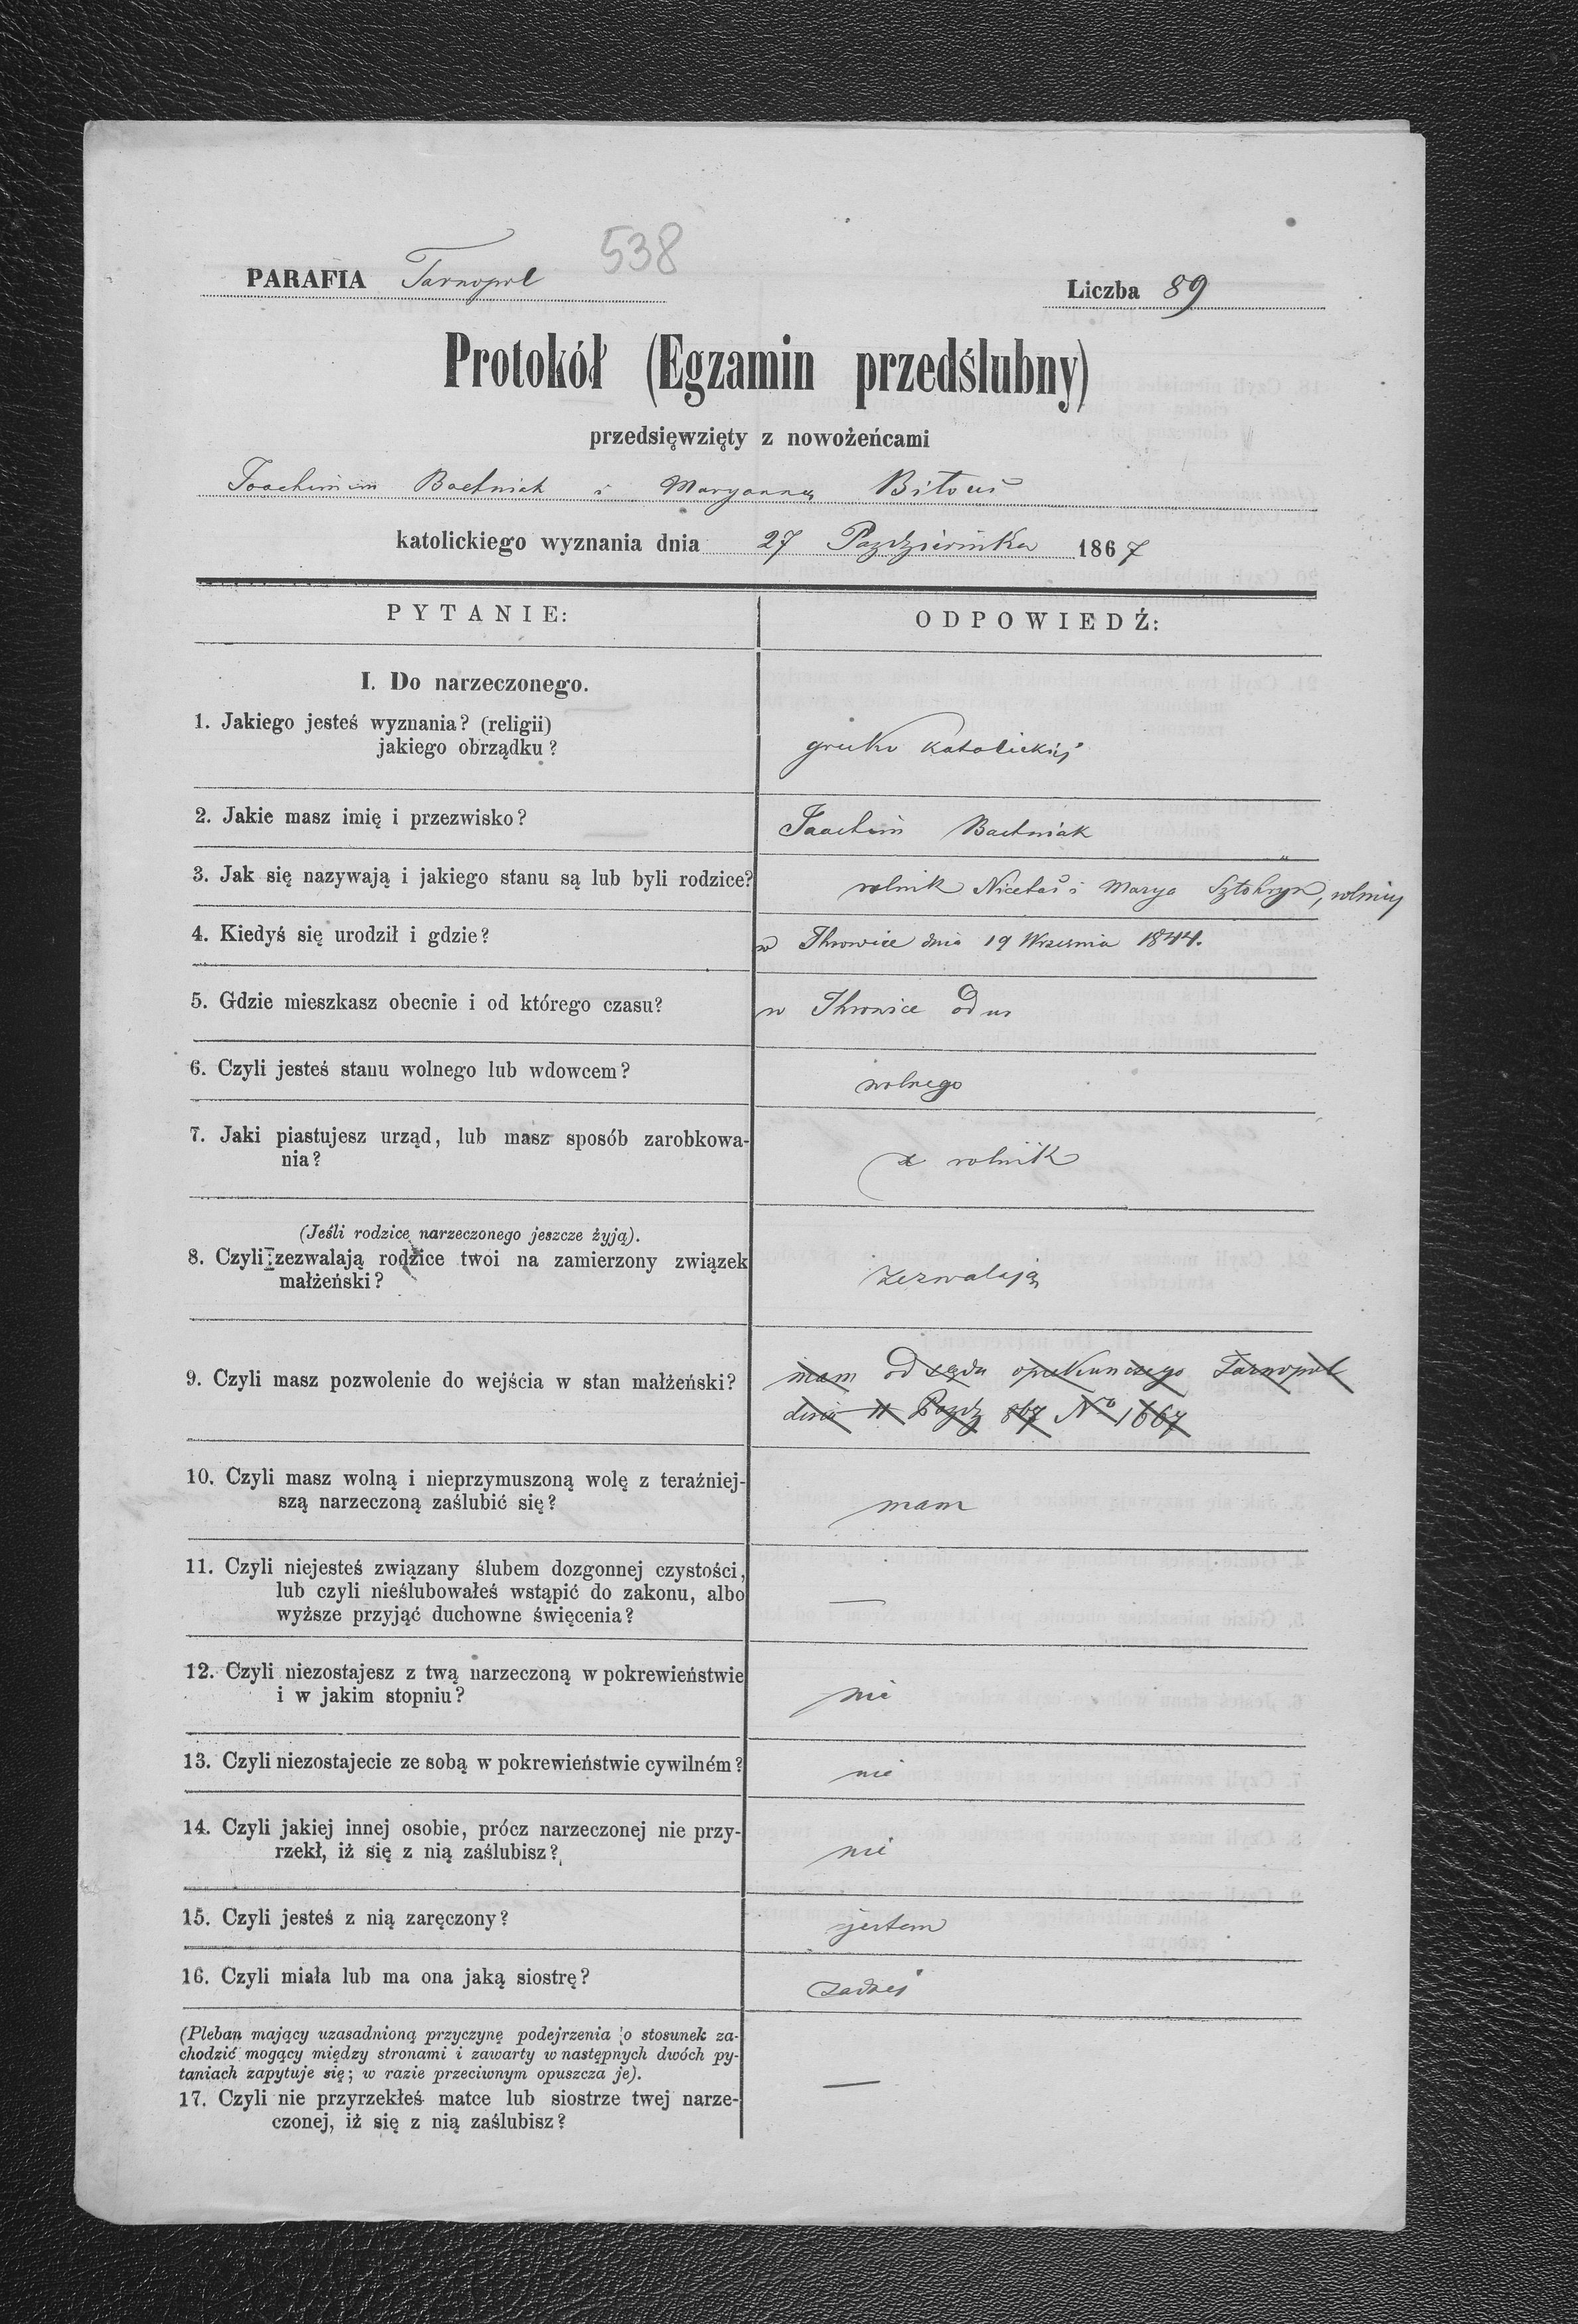 538
PARAFIA Tarnopol
Liczba 89
Protokół (Egzamin przedślubny)
przedsięwzięty z nowożeńcami
Joachimem Bachniak i Maryanną Bitouś
katolickiego wyznania dnia 27 Października 1867
PYTANIE:
ODPOWIEDŹ:
I. Do narzeczonego.
1. Jakiego jesteś wyznania? (religii)
jakiego obrządku?
greko katolickiej
2. Jakie masz imię i przezwisko?
Joachim Bachniak
3. Jak się nazywają i jakiego stanu są lub byli rodzice?
rolnik Nicetaś i Marya rolnicy
4. Kiedyś się urodził i gdzie?
w Ihrowice dnia 19 Września 1844.
5. Gdzie mieszkasz obecnie i od którego czasu?
w Ihrowice od ur
6. Czyli jesteś stanu wolnego lub wdowcem?
wolnego
7. Jaki piastujesz urząd, lub masz sposób zarobkowa-
nia?
rolnik
(Jeśli rodzice narzeczonego jeszcze żyją).
8. Czyli zezwalają rodzice twoi na zamierzony związek
małżeński?
zezwalają
9. Czyli masz pozwolenie do wejścia w stan małżeński?
mam od sądu opiekunczego Tarnopol
dnia 11 Pazdz 867 No 1667
10. Czyli masz wolną i nieprzymuszoną wolę z teraźniej-
szą narzeczoną zaślubić się?
mam
11. Czyli niejesteś związany ślubem dozgonnej czystości,
lub czyli nieślubowałeś wstąpić do zakonu, albo
wyższe przyjąć duchowne święcenia?
—
12. Czyli niezostajesz z twą narzeczoną w pokrewieństwie
i w jakim stopniu?
nie
13. Czyli niezostajecie ze sobą w pokrewieństwie cywilném?
nie
14. Czyli jakiej innej osobie, prócz narzeczonej nie przy-
rzekł, iż się z nią zaślubisz?
nie
15. Czyli jesteś z nią zaręczony?
jestem
16. Czyli miała lub ma ona jaką siostrę?
żadnej
(Pleban mający uzasadnioną przyczynę podejrzenia o stosunek za-
chodzić mogący między stronami i zawarty w następnych dwóch py-
taniach zapytuje się; w razie przeciwnym opuszcza je).
17. Czyli nie przyrzekłeś matce lub siostrze twej narze-
czonej, iż się z nią zaślubisz?
—